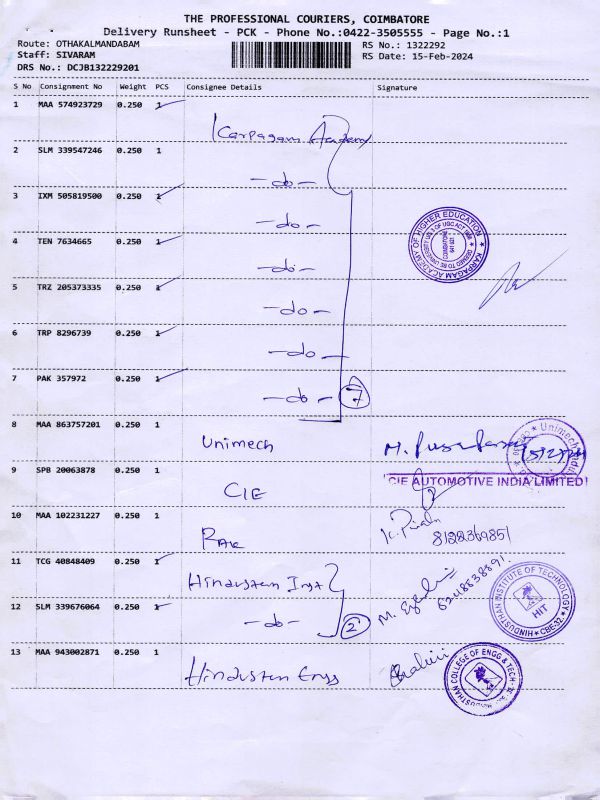 THE PROFESSIONAL COURIERS, COIMBATORE
Delivery Runsheet - PCK - Phone No.:0422-3505555 - Page No.:1
Route: OTHAKALMANDABAM RS No.: 1322292
Staff: SIVARAM RS Date: 15-Feb-2024
DRS No.: DCJB132229201
S No Consignment No Weight PCS Consignee Details Signature
1 MAA 574923729 0.250 1
Karpagam Academy
2 SLM 339547246 0.250 1
-do-
3 IXM 505819500 0.250 1
-do-
4 TEN 7634665 0.250 1
-do-
5 TRZ 205373335 0.250 1
-do-
6 TRP 8296739 0.250 1
-do-
7 PAK 357972 0.250 1
-do- 7
KARPAGAM ACADEMY OF HIGHER EDUCATION
COIMBATORE 641 021
8 MAA 863757201 0.250 1
Unimech
9 SPB 20063878 0.250 1
CIE
CIE AUTOMOTIVE INDIA LIMITED
10 MAA 102231227 0.250 1
8122369851
11 TCG 40848409 0.250 1
Hindustan Inst
12 SLM 339676064 0.250 1
-do- 2
HINDUSTHAN INSTITUTE OF TECHNOLOGY
HIT
CBE-32
13 MAA 943002871 0.250 1
Hindustan Engg
HINDUSTHAN COLLEGE OF ENGG & TECH